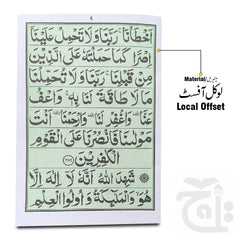 ۴
اَخْطَاْنَا ۚ رَبَّنَا وَلَا تَحْمِلْ عَلَيْنَاۤ
اِصْرًا كَمَا حَمَلْتَهٗ عَلَى الَّذِيْنَ
مِنْ قَبْلِنَا ۚ رَبَّنَا وَلَا تُحَمِّلْنَا
مَا لَا طَاقَةَ لَنَا بِهٖ ۚ وَاعْفُ
عَنَّا ۥ وَاغْفِرْ لَنَا ۥ وَارْحَمْنَا ۥ اَنْتَ
مَوْلٰىنَا فَانْصُرْنَا عَلَى الْقَوْمِ
الْكٰفِرِيْنَ ﴿۲۸۶﴾
شَهِدَ اللّٰهُ اَنَّهٗ لَاۤ اِلٰهَ اِلَّا
هُوَ ۙ وَالْمَلٰٓئِكَةُ وَاُولُوا الْعِلْمِ
Material
لوکل آفسٹ
Local Offset